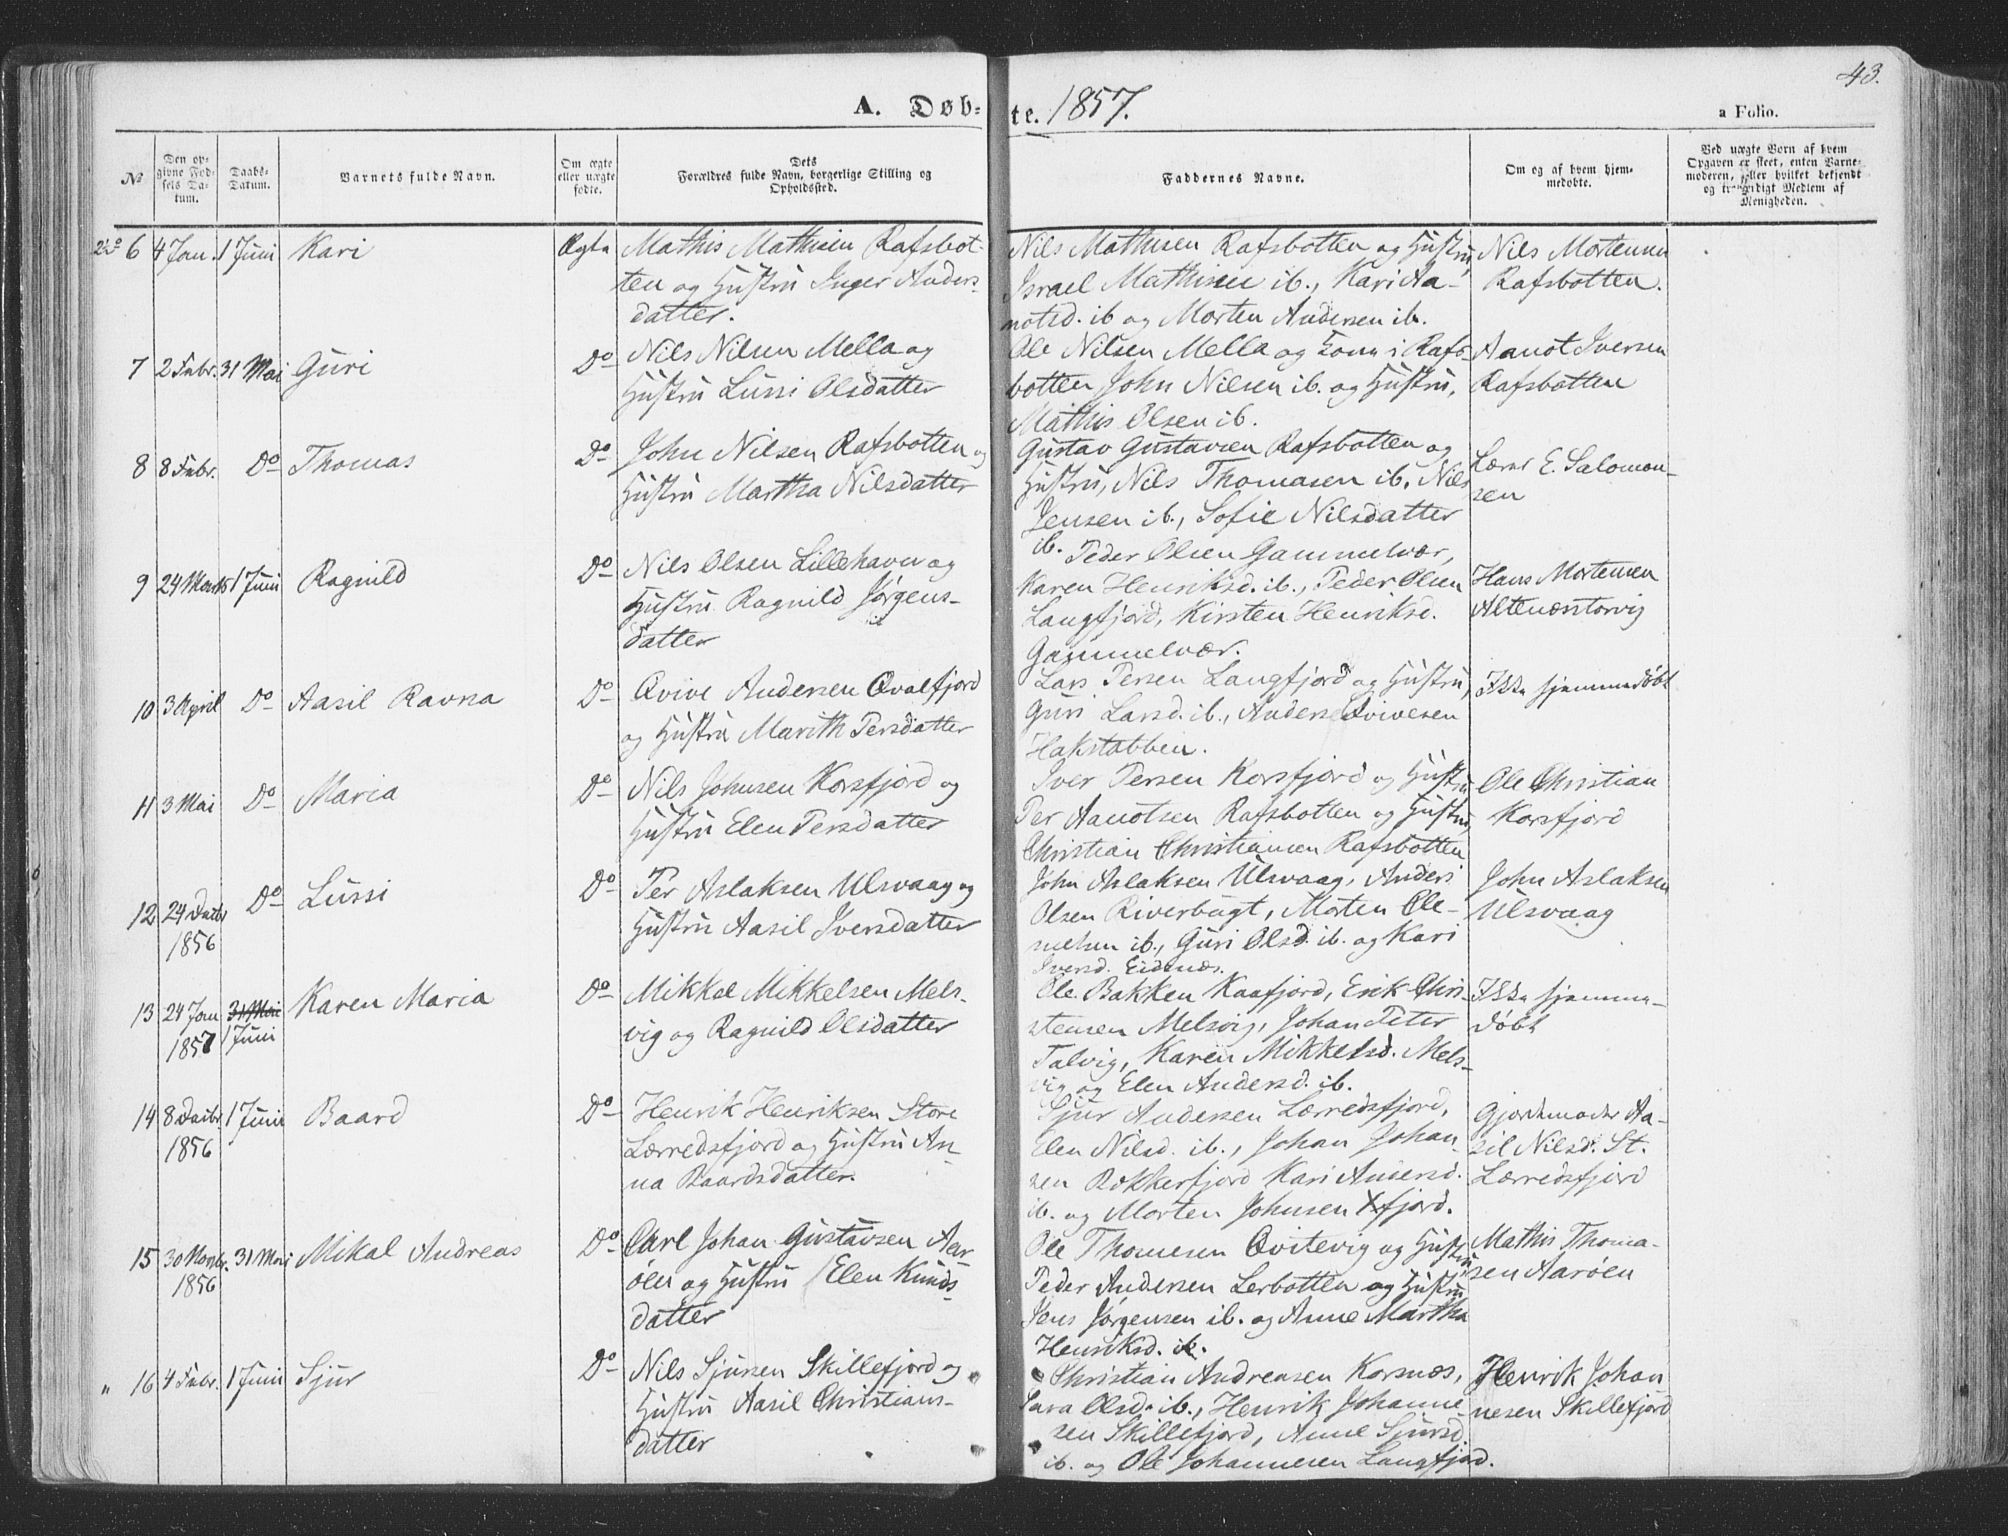 43.
A. Døb-
te. 1857.
a Folio.
№
Den op-
givne Fød-
sels Da-
tum.
Daabs-
Datum.
Barnets fulde Navn.
Om ægte
eller uægte
fødte.
Dets
Forældres fulde Navn, borgerlige Stilling og
Opholdssted.
Faddernes Navne.
Om og af hvem hjem-
medøbte.
Ved uægte Born af hvem
Opgaven er skeet, enten Barne-
moderen, eller hvilket bekjendt
og troværdigt Medlem af
Menigheden.
6 4 Jan. 1 Juni Kari Ægte Mathis Mathisen Rafsbot-
ten og Hustru Inger Anders-
datter.
Nils Mathisen Rafsbotten og Hustru,
Israel Mathisen ib., Kari Aa-
notsd. ib og Morten Andersen ib.
Nils Mortensen
Rafsbotten.
7 2 Febr. 31 Mai Guri Do Nils Nilsen Mella og
Hustru Lussi Olsdatter
Ole Nilsen Mella og Kone i Rafs-
botten John Nilsen ib. og Hustru,
Mathis Olsen ib.
Aanot Iversen
Rafsbotten
8 8 Febr. Do Thomas Do John Nilsen Rafsbotten og
Hustru Martha Nilsdatter
Gustav Gustavsen Rafsbotten og
Hustru, Nils Thomasen ib. Nils
Jensen ib., Sofie Nilsdatter
ib.
Lærer E. Salomon-
sen
9 24 Marts 1 Juni Ragnild Do Nils Olsen Lillehaven og
Hustru Ragnild Jørgens-
datter
Peder Olsen Gammelvær,
Karen Henriksd. ib., Peder Olsen
Langfjord, Kirsten Henriksd.
Gammelvær.
Hans Mortensen
Altenæstorvig
10 3 April Do Aasil Ravna Do Qvive Andersen Qvalfjord
og Hustru Marith Persdatter
Lars Persen Langfjord og Hustru,
Guri Larsd. ib., Anders Qvivesen
Hakstabben.
Ikke hjemmedøbt
11 3 Mai Do Maria Do Nils Johnsen Korsfjord og
Hustru Elen Persdatter
Iver Persen Korsfjord og Hustru
Per Aanotsen Rafsbotten og Hustru,
Christian Christiansen Rafsbotten
Ole Christian
Korsfjord
12 24 Decbr
1856 Do Lussi Do Per Aslaksen Ulsvaag og
Hustru Aasil Iversdatter
John Aslaksen Ulsvaag, Anders
Olsen Riverbugt, Morten Cle-
metsen ib., Guri Olsd. ib. og Kari
Iversd. Eidsnæs.
John Aslaksen
Ulsvaag
13 24 Jan
1857 31 Mai
1 Juni Karen Maria Do Mikkel Mikkelsen Mels-
vig og Ragnild Olsdatter
Ole Bakken Kaafjord, Erik Chri-
stensen Melsvig, Johan Peter
Talvig, Karen Mikkelsd. Mels-
vig og Elen Andersd. ib.
Ikke hjemme-
døbt
14 8 Decbr
1856 1 Juni Baard Do Henrik Henriksen Store
Lærredsfjord og Hustru An-
na Baardsdatter.
Sjur Andersen Lærredsfjord,
Elen Nilsd. ib., Johan Johan-
sen Rokkerfjord Kari Andersd.
ib. og Morten Johnsen Xfjord.
Gjordemoder Aa-
sil Nilsd. St.
Lærredsfjord
15 30 Novbr.
1856 31 Mai Mikal Andreas Do Carl Johan Gustavsen Aar-
öen og Hustru Elen Knuds-
datter
Ole Thomesen Qvitevig og Hustru,
Peder Andersen Lerbotten og Hustru
Jens Jørgensen ib. og Anne Martha
Henriksd. ib.
Mathis Thoma-
sen Aarøen
" 16 4 Febr. 1 Juni Sjur Do Nils Sjursen Skillefjord og
Hustru Aasil Christians-
datter
Christian Andreasen Korsnæs,
Sara Olsd. ib., Henrik Johanne-
sen Skillefjord, Anne Sjursd.
ib. og Ole Johannesen Langfjord.
Henrik Johan
nesen Skillefjord